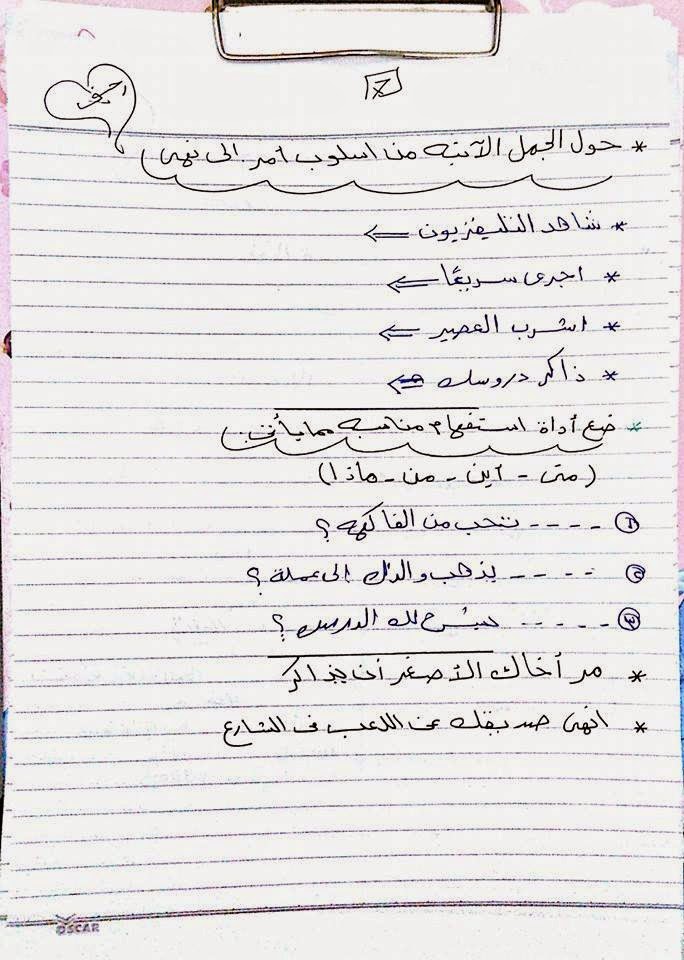 * حول الجمل الآتيه من اسلوب أمر الى نهى
* شاهد التليفزيون ⇐
* اجرى سريعًا ⇐
* اشرب العصير ⇐
* ذاكر دروسك ⇐
* ضع أداة استفهام مناسبه مما يأتى..
(متى - أين - من - ماذا)
① ---- تحب من الفاكهه ؟
② ---- يذهب والدك الى عملة ؟
③ ----- يشرح لك الدرس ؟
* مر أخاك الأصغر أن يذاكر
* انهى صديقك عن اللعب فى الشارع
OSCAR